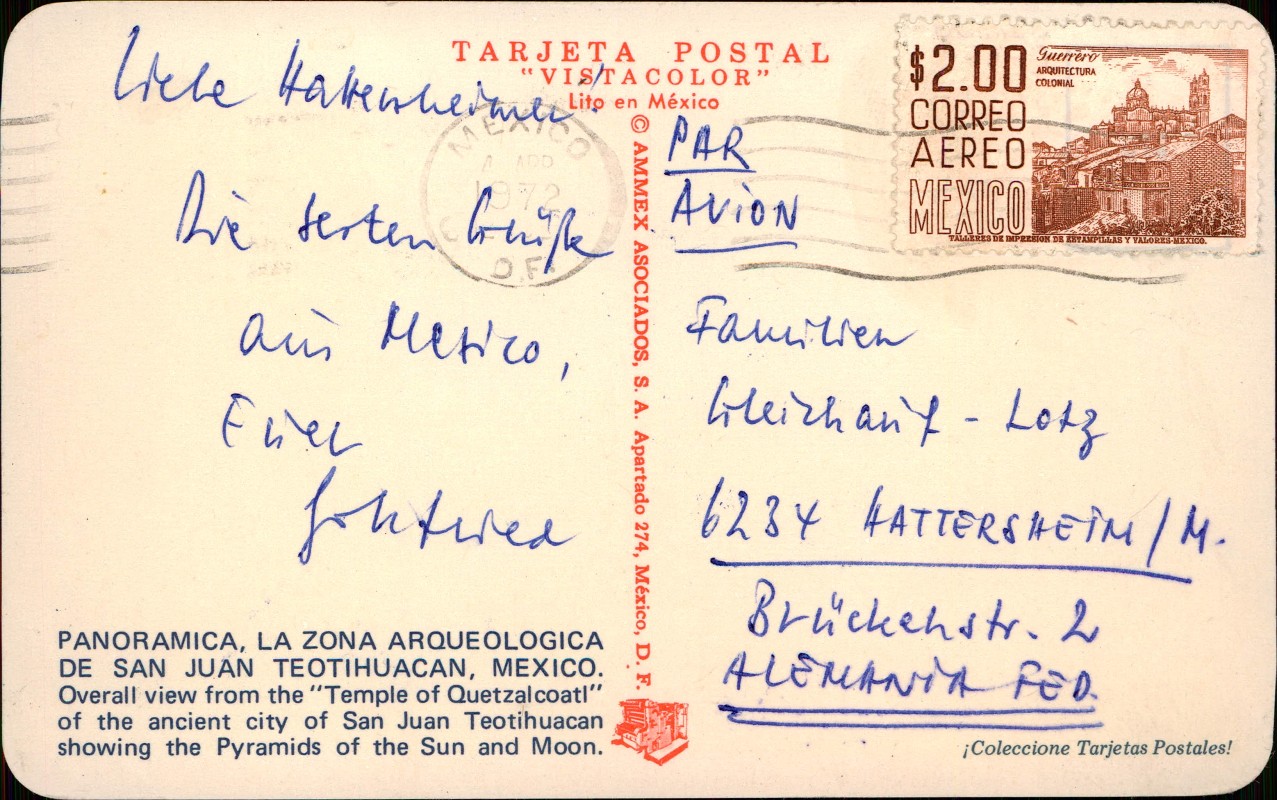 TARJETA POSTAL
"VISTACOLOR"
Lito en México
Liebe Hattersheimer!
Die besten Grüße
aus Mexico,
Euer
Gottfried
PANORAMICA, LA ZONA ARQUEOLOGICA
DE SAN JUAN TEOTIHUACAN, MEXICO.
Overall view from the "Temple of Quetzalcoatl"
of the ancient city of San Juan Teotihuacan
showing the Pyramids of the Sun and Moon.
© AMMEX ASOCIADOS, S. A. Apartado 274, México, D. F.
MEXICO
ABR
1972
D.F.
$2.00
Guerrero
ARQUITECTURA
COLONIAL
CORREO
AEREO
MEXICO
TALLERES DE IMPRESION DE ESTAMPILLAS Y VALORES-MEXICO.
PAR
AVION
Familien
Gleichauf - Lotz
6234 HATTERSHEIM/M.
Brückenstr. 2
ALEMANIA FED.
¡Coleccione Tarjetas Postales!